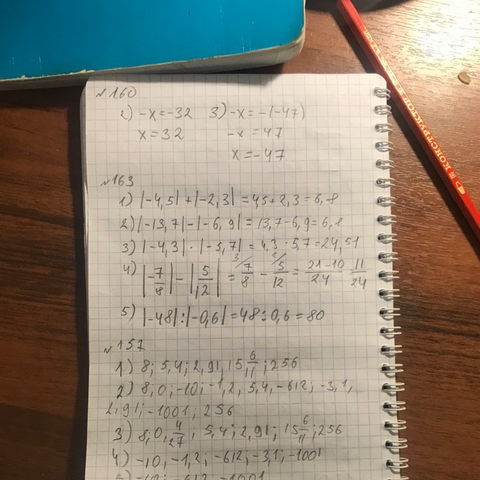 №160
2) -x=-32   3) -x=-(-47)
x=32   -x=47
x=-47
№163
1) |-4,5|+|-2,3|=4,5+2,3=6,8
2) |-13,7|-|-6,9|=13,7-6,9=6,8
3) |-4,3|·|-5,7|=4,3·5,7=24,51
4) |-7/8|-|5/12|=7/8-5/12=21-10/24 11/24
5) |-48|:|-0,6|=48:0,6=80
№157
1) 8; 5,4; 2,91; 15 6/11; 256
2) 8, 0, -10; -1,2, 5,4, -612; -3,1,
2,91; -1001; 256
3) 8, 0, 4/27, 5,4; 2,91; 15 6/11; 256
4) -10, -1,2, -612; -3,1; -1001
-612 -1001
КОНСТРУКТОР